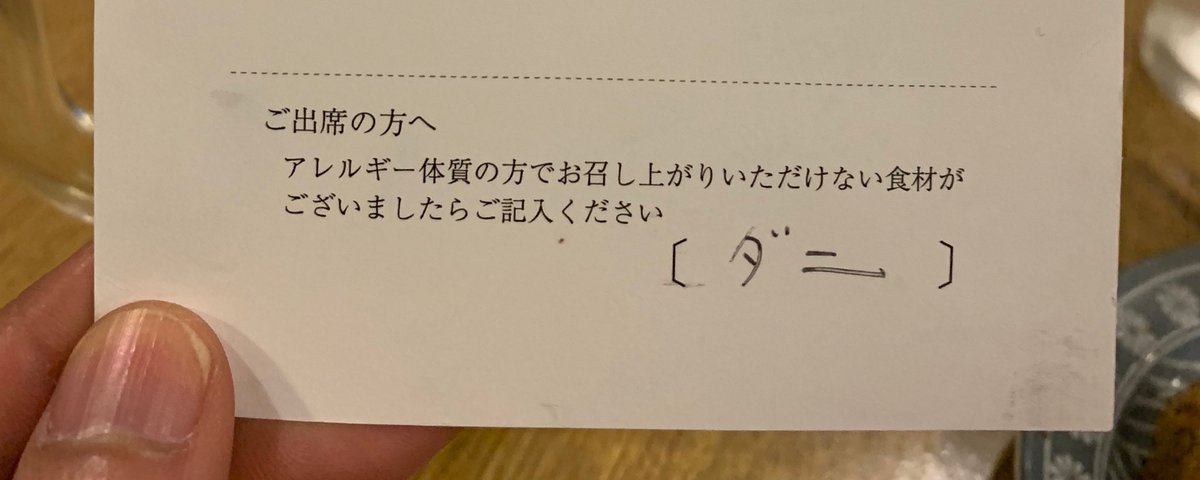 ご出席の方へ
アレルギー体質の方でお召し上がりいただけない食材が
ございましたらご記入ください
〔 ダニ 〕